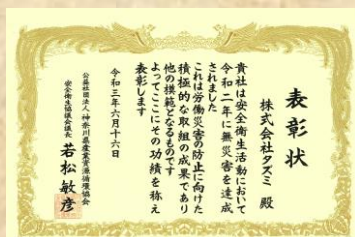 表彰状
株式会社タズミ 殿
貴社は安全衛生活動において
令和二年に無災害を達成
されました
これは労働災害の防止に向けた
積極的な取組の成果であり
他の模範となるものです
よってここにその功績を称え
表彰します
令和三年六月十六日
公益社団法人 神奈川県産業資源循環協会
安全衛生協議会議長 若松敏彦